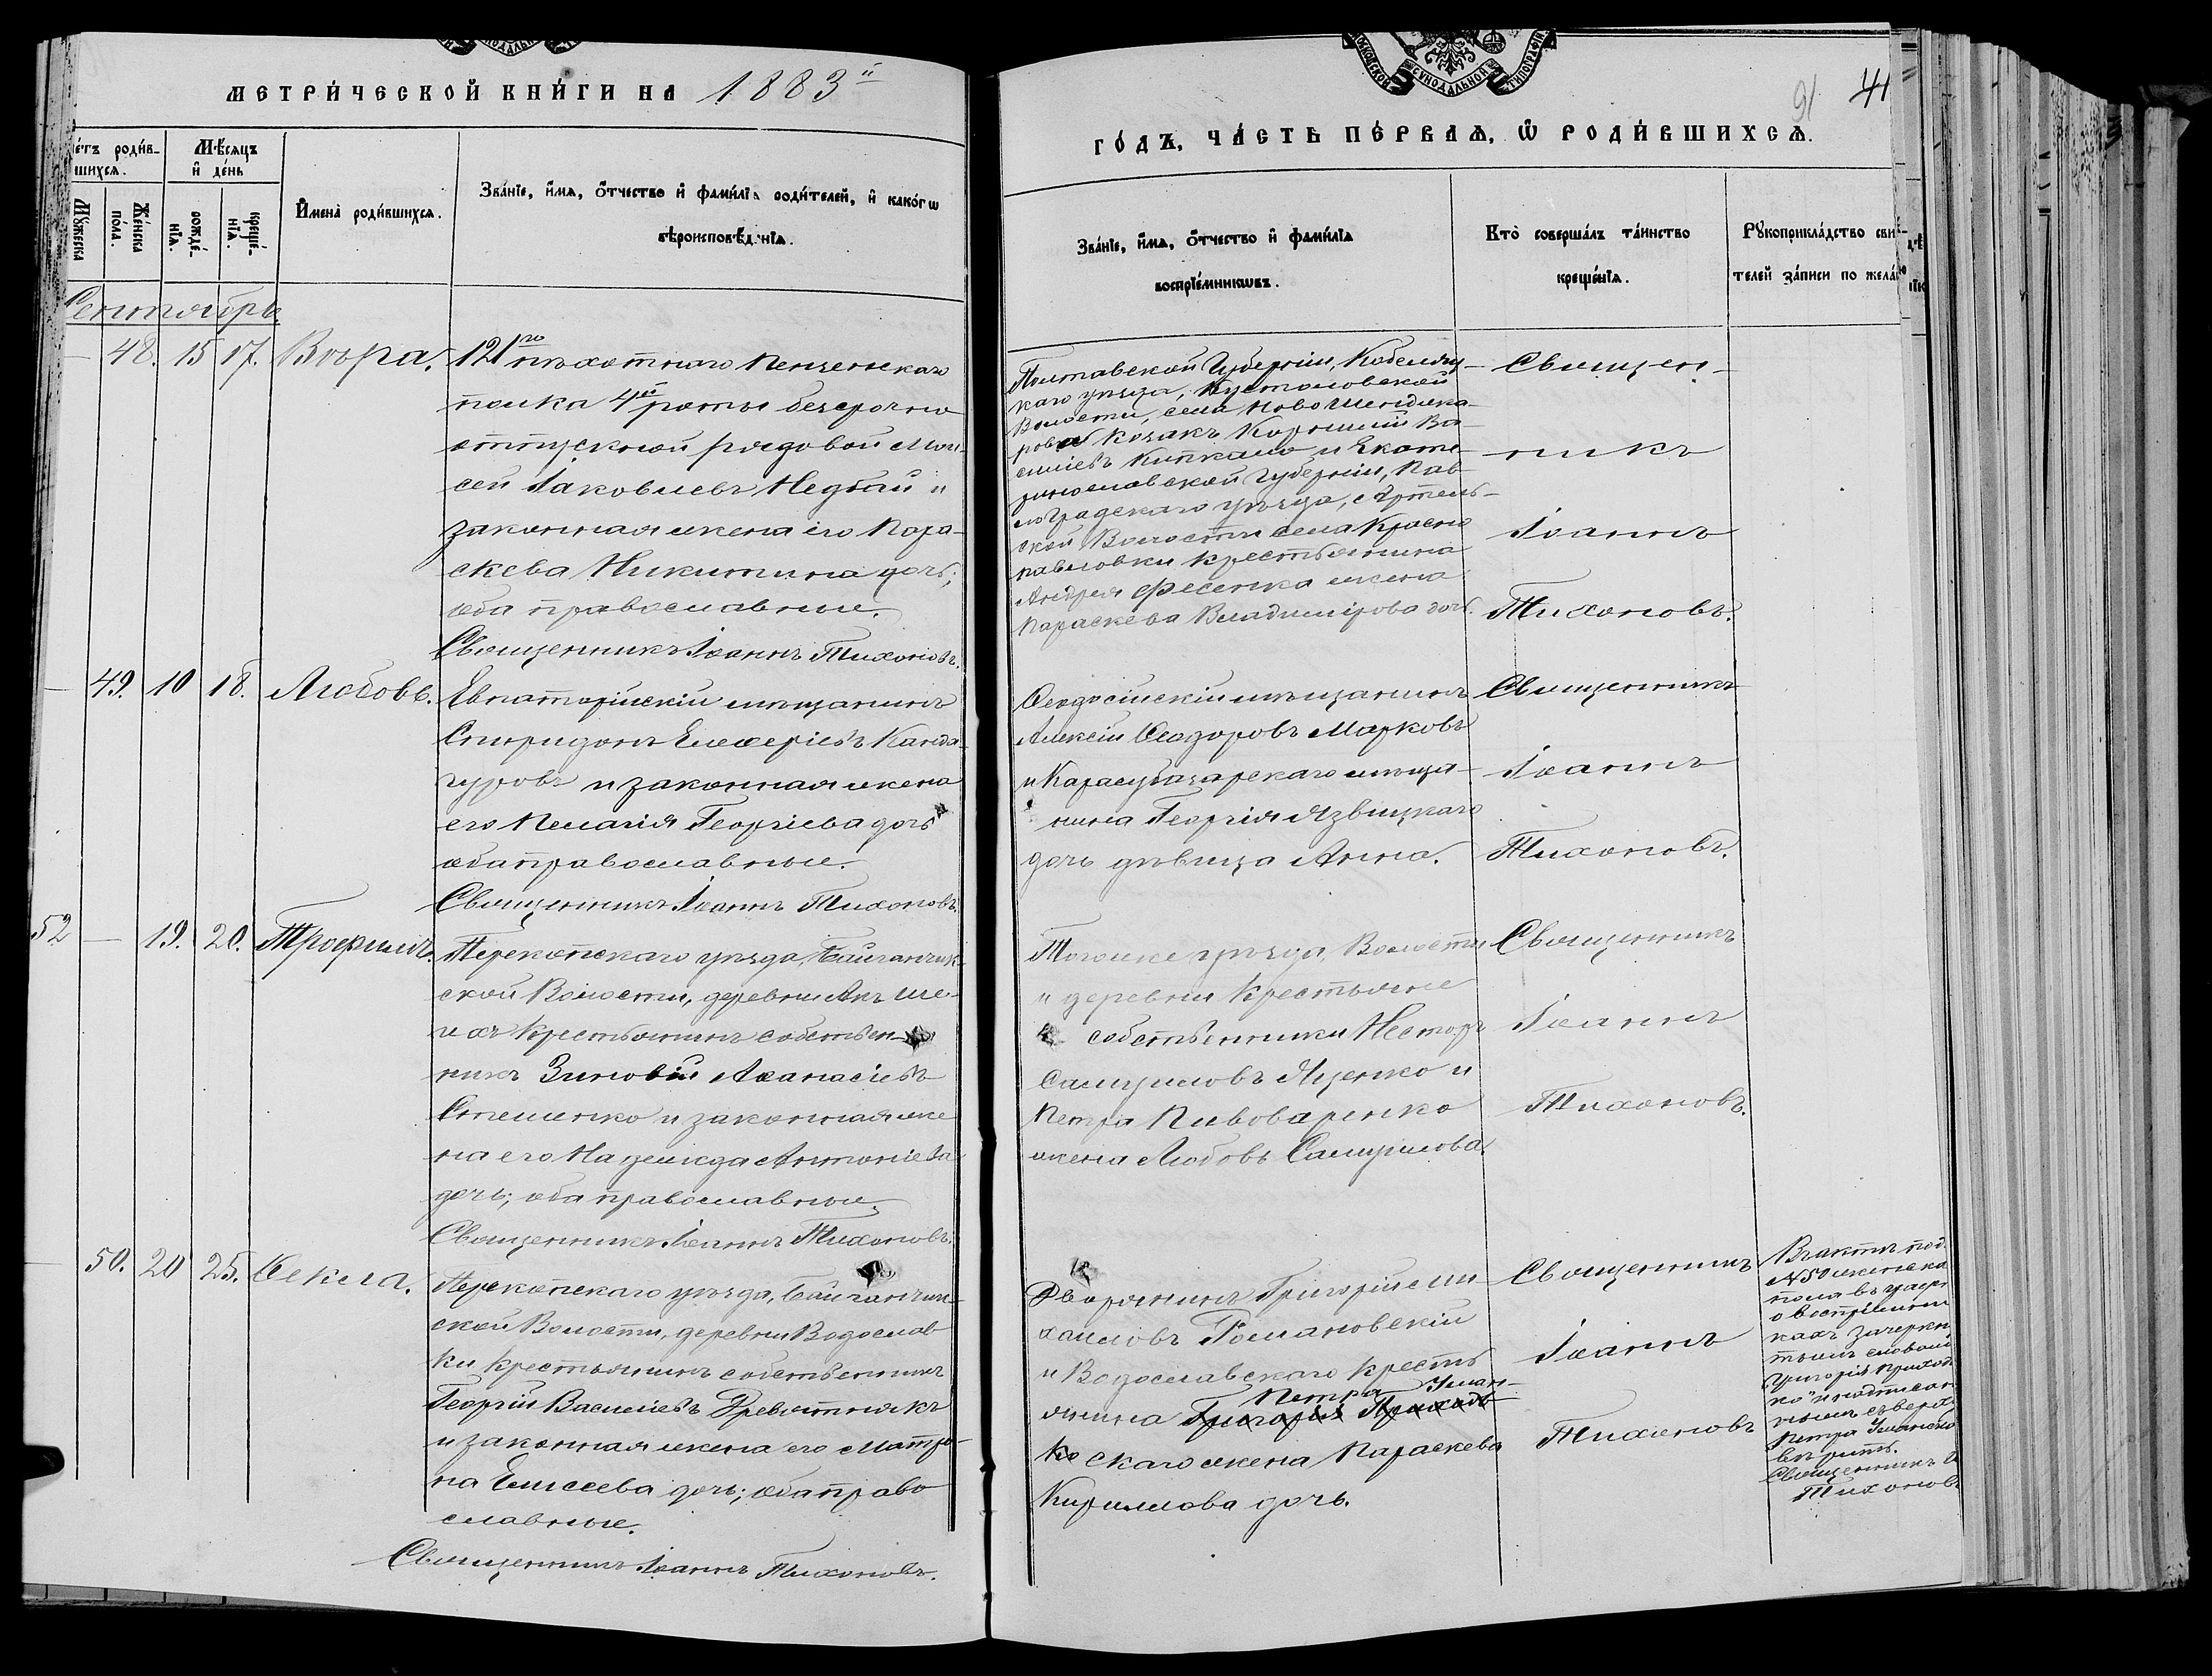 МЕТРИ́ЧЕСКОЙ КНИ́ГИ НА 1883й
ГО́ДЪ, ЧА́СТЬ ПЕ́РВАЯ, Ѿ РОДИ́ВШИХСЯ.
91 41
Мѣ́сяцъ и де́нь
Му́жеска
Же́нска по́ла.
рожде́нїя.
креще́нїя.
И҆мена̀ роди́вшихся.
Зва́нїе, и҆́мя, ѻ҆́тчество и҆ фами́лїя роди́телей, и҆ како́гѡ
вѣроисповѣ́данїя.
Зва́нїе, и҆́мя, ѻ҆́тчество и҆ фами́лїя
воспрїе́мникѡвъ.
Кто̀ соверша́лъ та́инство
креще́нїя.
Рꙋкоприкла́дство сви
телей за́писи по жела́
Сентябрь.
— 48. 15 17. Вѣра.
121го пѣхотнаго Пензенскаго
полка 4ой роты безсрочно
отпускной рядовой Мои-
сей Іаковлевъ Недбай и
законная жена его Пара-
скева Никитина дочь;
оба православные.
Священникъ Іоаннъ Тихоновъ.
Полтавской Губерніи, Кобеляц-
каго уѣзда, Кустоловской
Волости, села Ново
козакъ Корнилій Ва-
силіевъ и Екате-
ринославской Губерніи, Пав-
лоградскаго уѣзда,
ской Волости села Красно
павловки крестьянина
Андрея Фесенка жена
Параскева Владимірова дочь.
Священ-
никъ
Іоаннъ
Тихоновъ.
— 49. 10 18. Любовь.
Евпаторійскій мѣщанинъ
Спиридонъ Елеѳеріевъ Канда-
гуровъ и законная жена
его Пелагія Георгіева дочь
оба православные.
Священникъ Іоаннъ Тихоновъ.
Ѳеодосійскій мѣщанинъ
Алексій Ѳеодоровъ Марковъ
и Карасубазарскаго мѣща-
нина Георгія Язвицкаго
дочь дѣвица Анна.
Священникъ
Іоаннъ
Тихоновъ.
52 — 19. 20. Трофимъ.
Перекопскаго уѣзда, Байгончик-
ской Волости, деревни Акъ Ше-
ихъ Крестьянинъ собствен-
никъ Зиновій Аѳанасіевъ
Стеценко и законная же
на его Надежда Антоніева
дочь; оба православные.
Священникъ Іоаннъ Тихоновъ.
Тогоже уѣзда, Волости
и деревни Крестьяне
собственники Несторъ
Самуиловъ Яценко и
Петра Пивоваренко
жена Любовь Самуилова.
Священникъ
Іоаннъ
Тихоновъ.
— 50. 20 25. Ѳекла.
Перекопскаго уѣзда, Байгончик-
ской Волости, деревни Водослав
ки Крестьянинъ собственникъ
Георгій Василіевъ Древотнякъ
и законная жена его Матро-
на Елисеева дочь; оба право
славные.
Священникъ Іоаннъ Тихоновъ.
Дворянинъ Григорій Ми
хаиловъ Романовскій
и Водославскаго Кресть
Петра Уман-
янина Григорія Приходь
ко скаго жена Параскева
Кирилова дочь.
Священникъ
Іоаннъ
Тихоновъ
Въ актѣ под
№ 50 женска
пола въ графѣ
о воспріемни
кахъ зачеркн
тымъ словамъ
„Григорія Приход
ко" и надписан
нымъ сверх
Петра Уманско
вѣрить.
Священникъ І
Тихоновъ